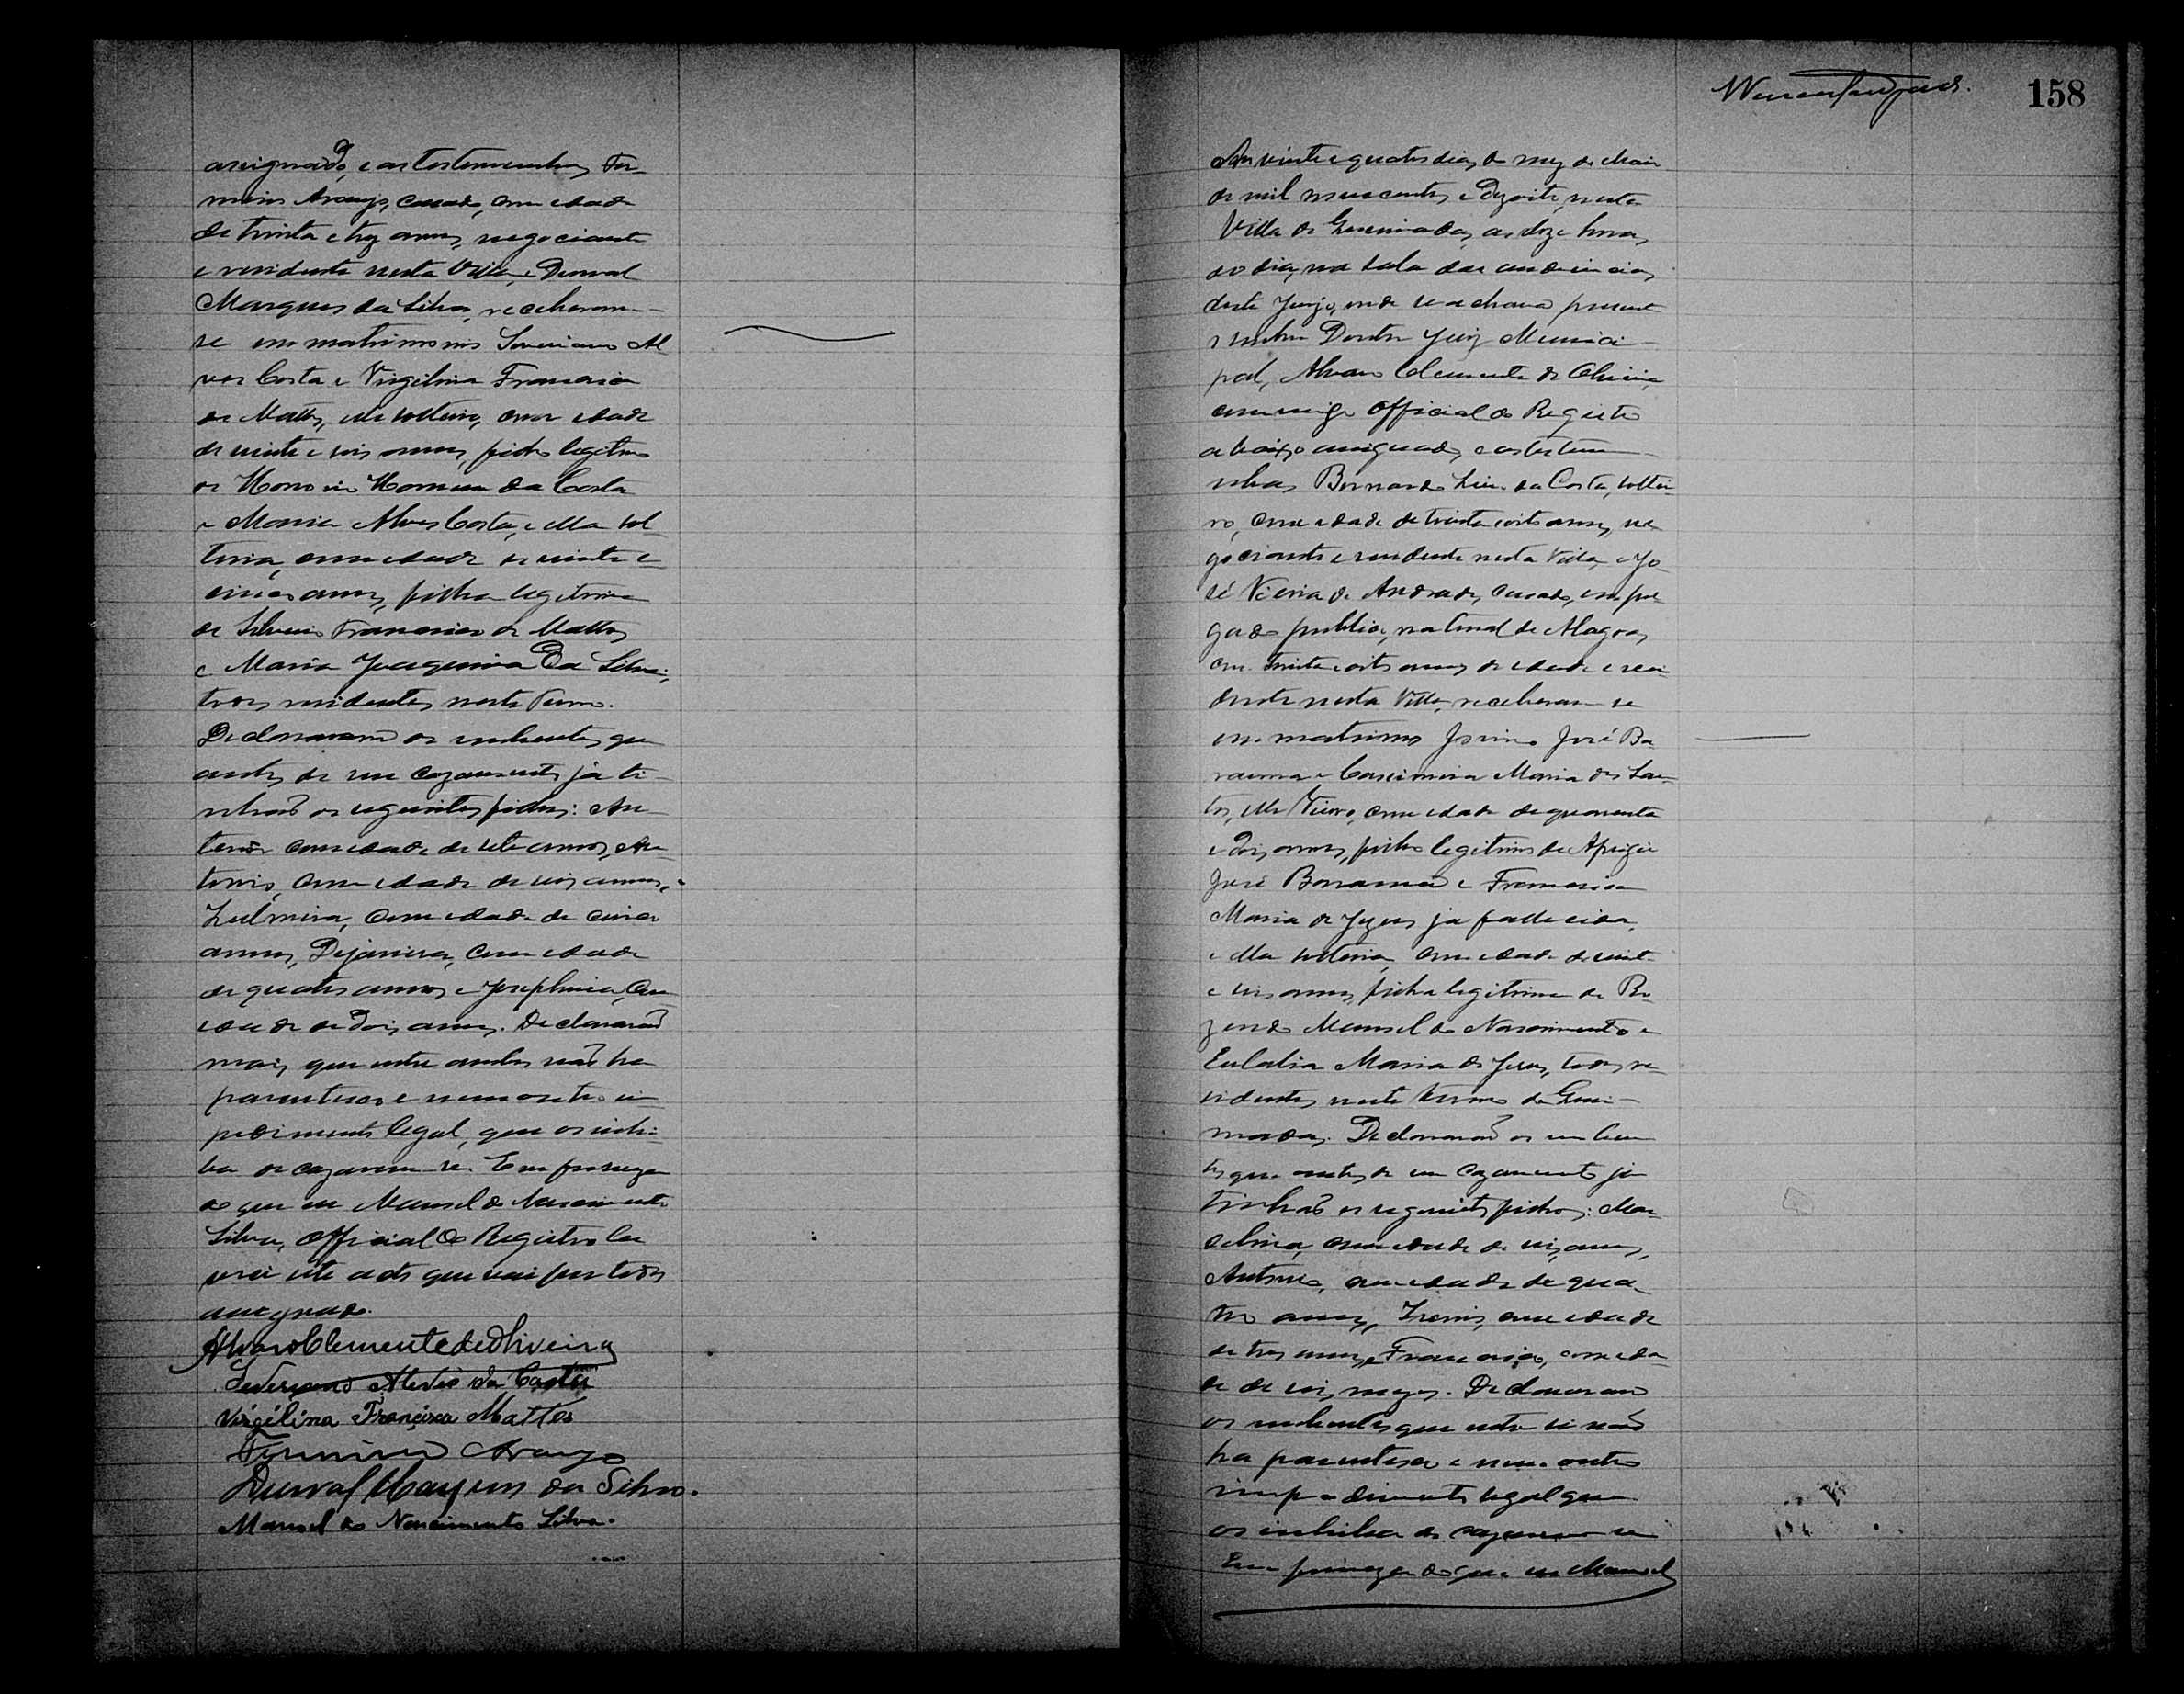 assignado, e as testemunhas Fir-
mino Araujo, casado, com edade
de trinta e tres annos, negociante
e residente nesta Villa, e Durval
Marques da Silva, receberam-
se em matrimonio Severiano Al
ves Costa e Virgilina Francisca
de Mattos, elle solteiro, com edade
de vinte e seis annos, filho legitimo
de Honorio Homem da Costa
e Maria Alves Costa, e ella sol
teira, com edade de vinte e
cinco annos, filha legitima
de Silverio Francisco de Mattos
e Maria Joaquina da Silva,
todos residentes neste Termo.
Declararam os nubentes que
antes de seu cazamento já ti-
nhaõ os seguintes filhos: An
tenor com edade de sete annos, An
tonio, com edade de seis annos,
Zulmira, com edade de cinco
annos, Dejanira, com edade
de quatro annos e Josephina, com
edade de dois annos. Declararaõ
mais que entre ambos naõ ha
parentesco e nem outro im
pedimento legal, que os inhi-
ba de cazarem-se. Em firmeza
do que eu Manoel do Nascimento
Silva, Official do Registro la
vrei este acto que vai por todos
assignado.
Alvaro Clemente de Oliveira
Severiano Alves da Costa
Virgilina Francisca Mattos
Firmino Araujo
Durval Marques da Silva.
Manoel do Nascimento Silva.
158
Aos vinte e quatro dias do mez de Maio
de mil novecentos e dezoito, nesta
Villa de, as doze horas
do dia, na sala das audiencias
deste Juizo, onde se achava presente
o senhor Doutor Juiz Munici-
pal, Alvaro Clemente de Oliveira,
commigo Official do Registro
abaixo assignado, e as testemu
nhas Bernardo da Costa, soltei-
ro, com edade de trinta e oito annos, ne
gociante e residente nesta Villa, e Jo
sé Vieira de Andrade, casado, empre
gado publico, natural de Alagoas,
com trinta e oito annos de edade e resi
dente nesta Villa, receberam-se
em matrimonio José Ba
rauna e Cassimira Maria dos San
tos, elle Viuvo, com edade de quarenta
e dois annos, filho legitimo de Aprigio
José Barauna e Francisca
Maria de Jezus já fallecida,
e ella solteira, com edade de vinte
e seis annos, filha legitima de Ro
zendo Manoel do Nascimento e
Eulalia Maria de Jesus, todos re
sidentes neste termo de
Declararaõ os nuben
tes que antes de seu cazamento já
tinhaõ os seguintes filhos: Mar
colina, com edade de seis annos,
Antonio, com edade de qua
tro annos, com edade
de tres annos, e Francisco, com eda
de de seis mezes. Declararam
os nubentes que entre si naõ
ha parentesco e nem outro
impedimento legal que
os inhiba de cazarem-se
Em firmeza do que eu Manoel